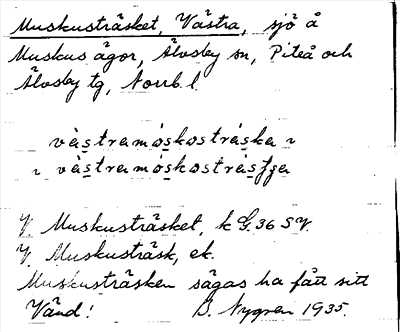 Muskusträsket, Västra, sjö å
Muskus ägor, Älvsby sn, Piteå och
Älvsby tg, Norrb. l.
västramåskosträska
västramåskosträsʃga
V. Muskusträsket, k G. 36 SV.
V. Muskusträsk, ek.
Muskusträsken sägas ha fått sitt
Vänd! B. Nygren 1935.